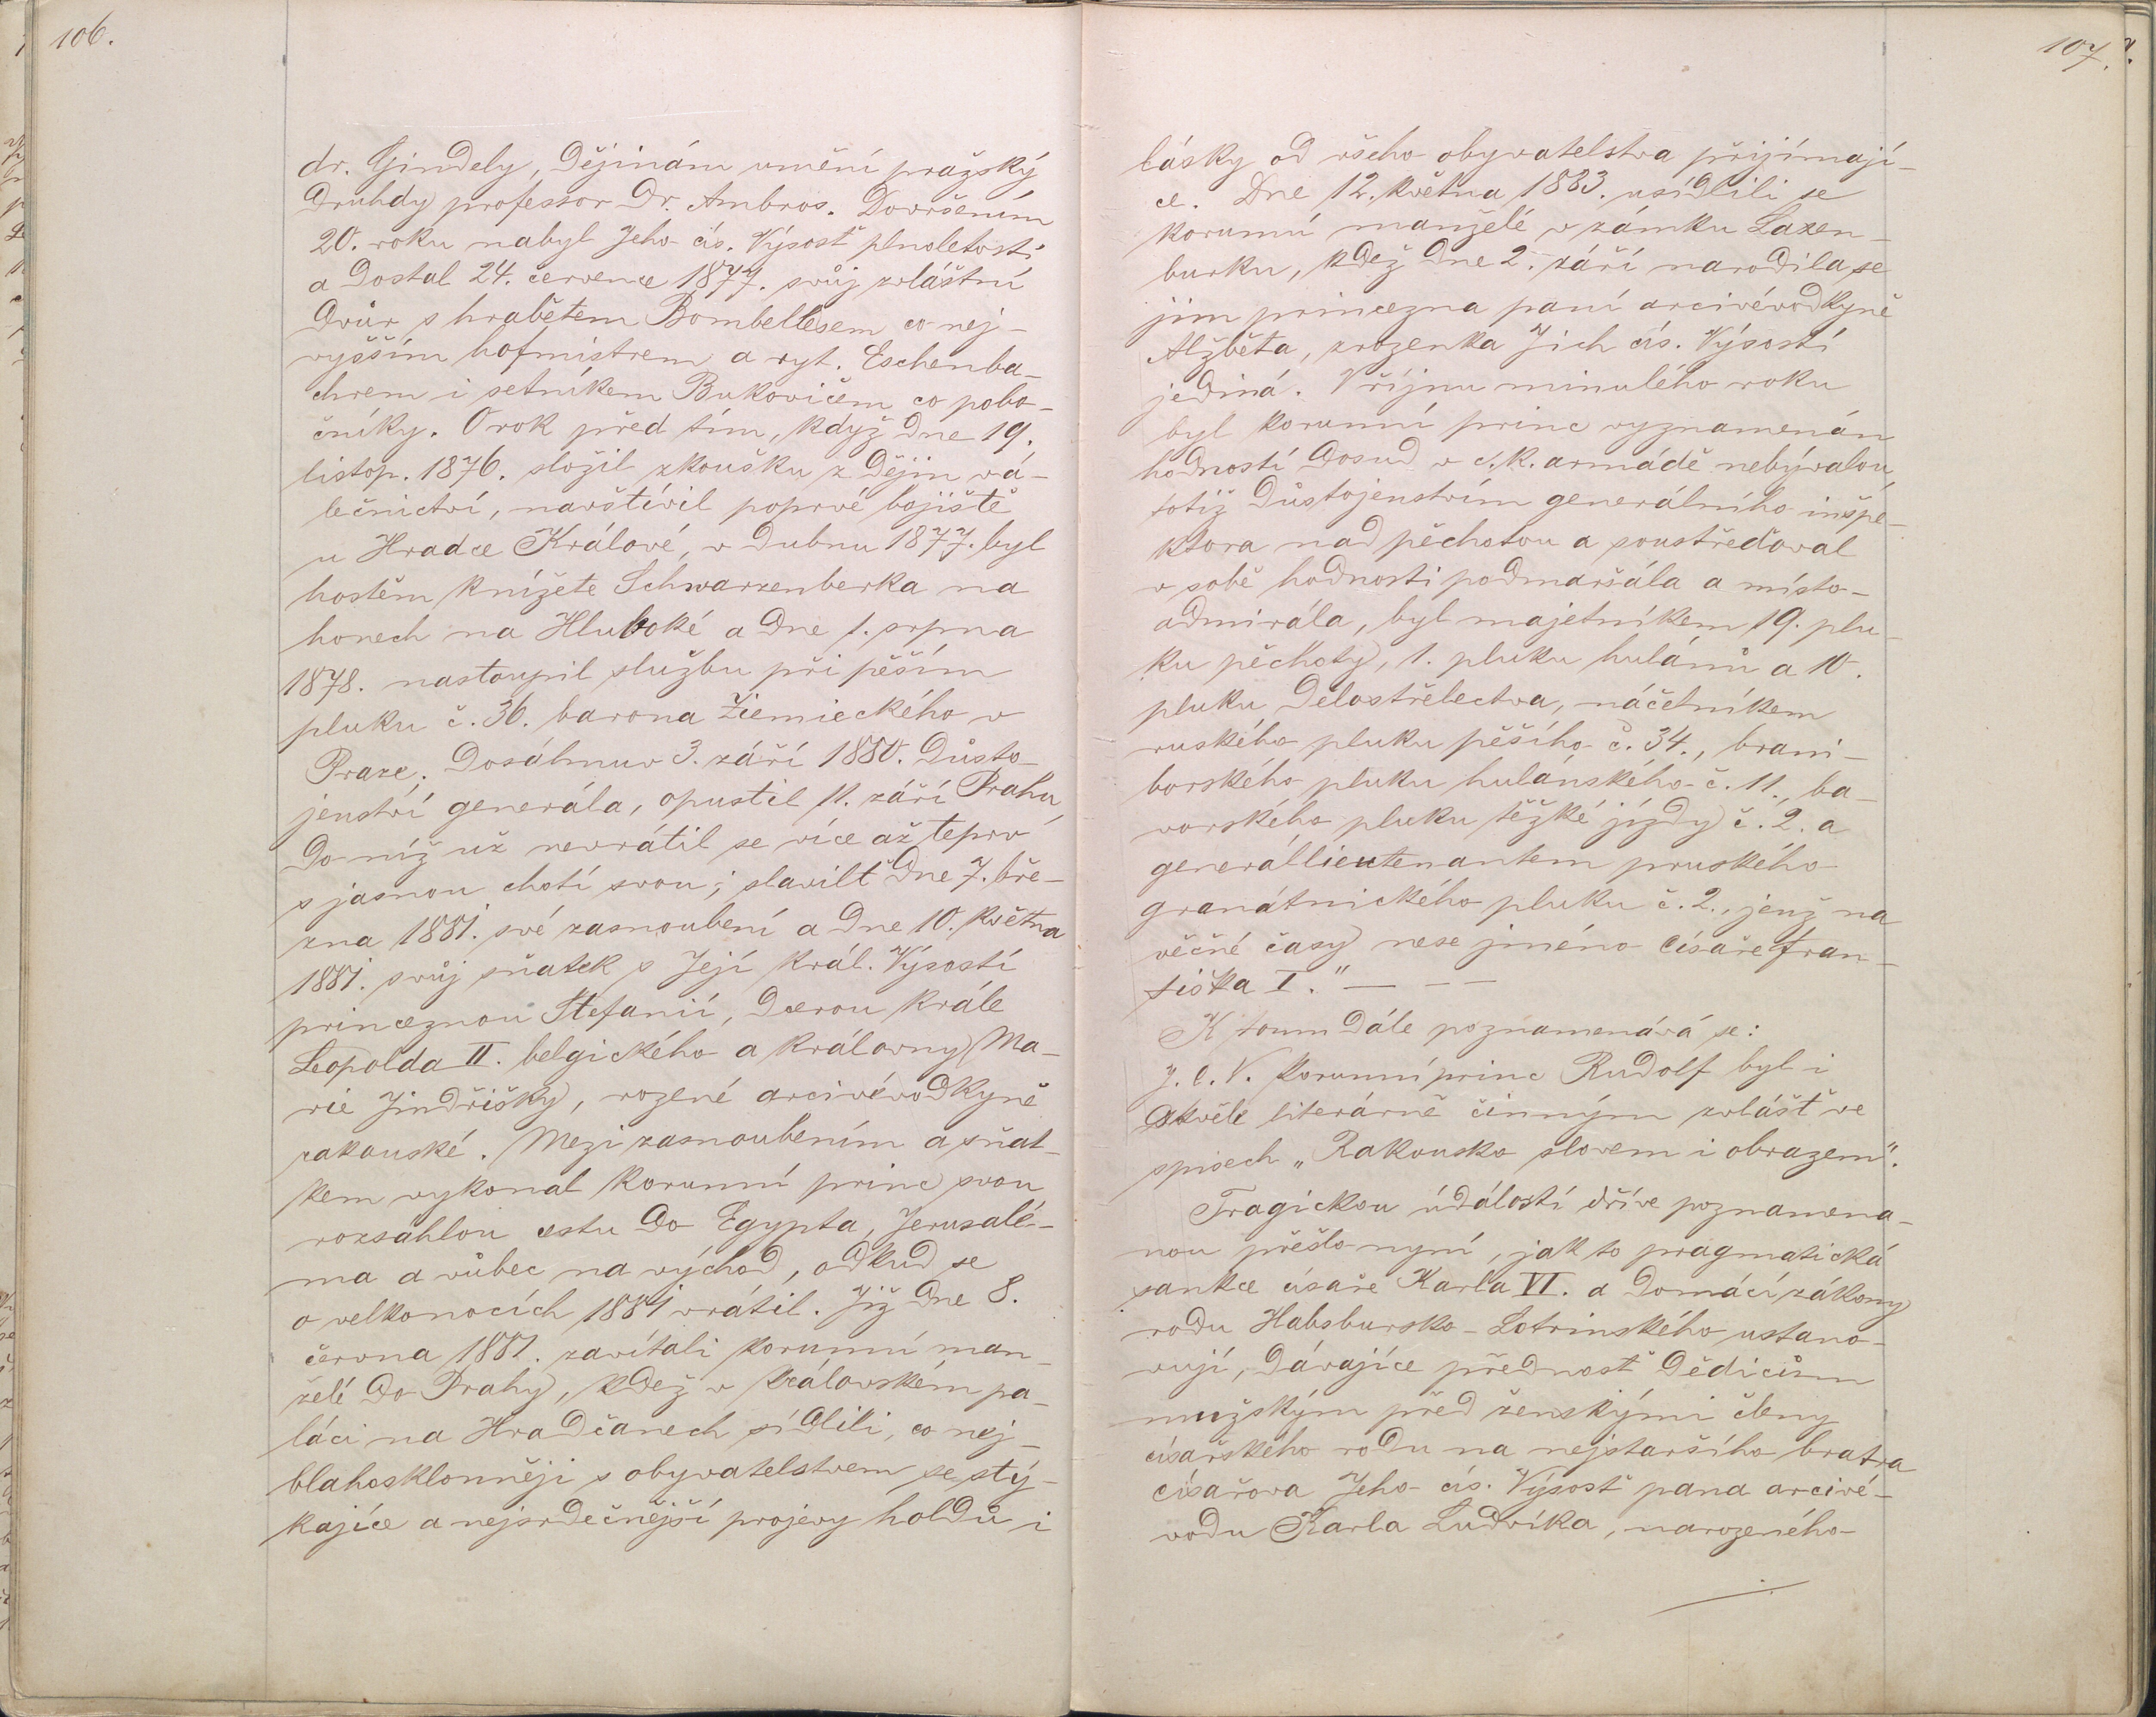 106.
dr. Gindely, dějinám umění pražský
druhdy professor Dr. Ambros. Dovršením
20. roku nabyl Jeho cís. Výsosť plnoletosti
a dostal 24. července 1877. svůj zvláštní
dvůr s hrabětem Bombellesem co nej-
vyšším hofmistrem a ryt. Eschenba-
chrem i setníkem Bukovičem co pobo-
čníky. O rok před tím, když dne 19.
listop. 1876. složil zkoušku z dějin vá-
lečnictví, navštívil poprvé bojiště
u Hradce Králové, v dubnu 1877. byl
hostěm knížete Schwarzenberka na
honech na Hluboké a dne 1. srpna
1878. nastoupil službu při pěším
pluku č. 36. barona Ziemieckého v
Praze. Dosáhnuv 3. září 1880. důsto-
jenství generála, opustil 11. září Prahu,
do níž už nevrátil se více až teprv
s jasnou chotí svou; slavilť dne 7. bře-
zna 1881. své zasnoubení a dne 10. května
1881. svůj sňatek s Její král. Výsostí
princeznou Stefanií, dcerou krále
Leopolda II. belgického a královny Ma-
rie Jindřišky, rozené arcivévodkyně
rakouské. Mezi zasnoubením a sňat-
kem vykonal korunní princ svou
rozsáhlou cestu do Egypta, Jerusalé-
ma a vůbec na východ, odkud se
o velkonocích 1881 vrátil. Již dne 8.
června 1881. zavítali korunní man-
želé do Prahy, kdež v královském pa-
láci na Hradčanech sídlili, co nej-
blahosklonněji s obyvatelstvem se stý-
kajíce a nejsrdečnější projevy holdu i
107.
lásky od všeho obyvatelstva přijímají-
ce. Dne 12. května 1883. usídlili se
korunní manželé v zámku Laxen-
burku, kdež dne 2. září narodila se
jim princezna paní arcivévodkyně
Alžběta, zrozenka Jich cís. Výsostí
jediná. V říjnu minulého roku
byl korunní princ vyznamenán
hodností dosud v c. k. armádě nebývalou,
totiž důstojenstvím generálního inspe-
ktora nad pěchotou a soustřeďoval
v sobě hodnosti podmaršála a místo-
admirála, byl majetníkem 19. plu-
ku pěchoty, 1. pluku hulánů a 10.
pluku dělostřelectva, náčetníkem
ruského pluku pěšího č. 34., brani-
borského pluku hulánského č. 11., ba-
vorského pluku těžké jízdy č. 2. a
generállieutenantem pruského
granátnického pluku č. 2., jenž na
věčné časy nese jméno císaře Fran-
tiška I." — — —
K tomu dále poznamenává se:
J. C. V. korunní princ Rudolf byl i
skvěle literárně činným zvlášť ve
spisech „Rakousko slovem i obrazem".
Tragickou událostí dříve poznamena-
nou přešlo nyní, jak to pragmatická
sankce císaře Karla VI. a domácí zákony
rodu Habsbursko-Lotrinského ustano-
vují, dávajíce přednosť dědicům
mužským před ženskými členy
císařského rodu na nejstaršího bratra
císařova Jeho cís. Výsosť pana arcivé-
vodu Karla Ludvíka, narozeného